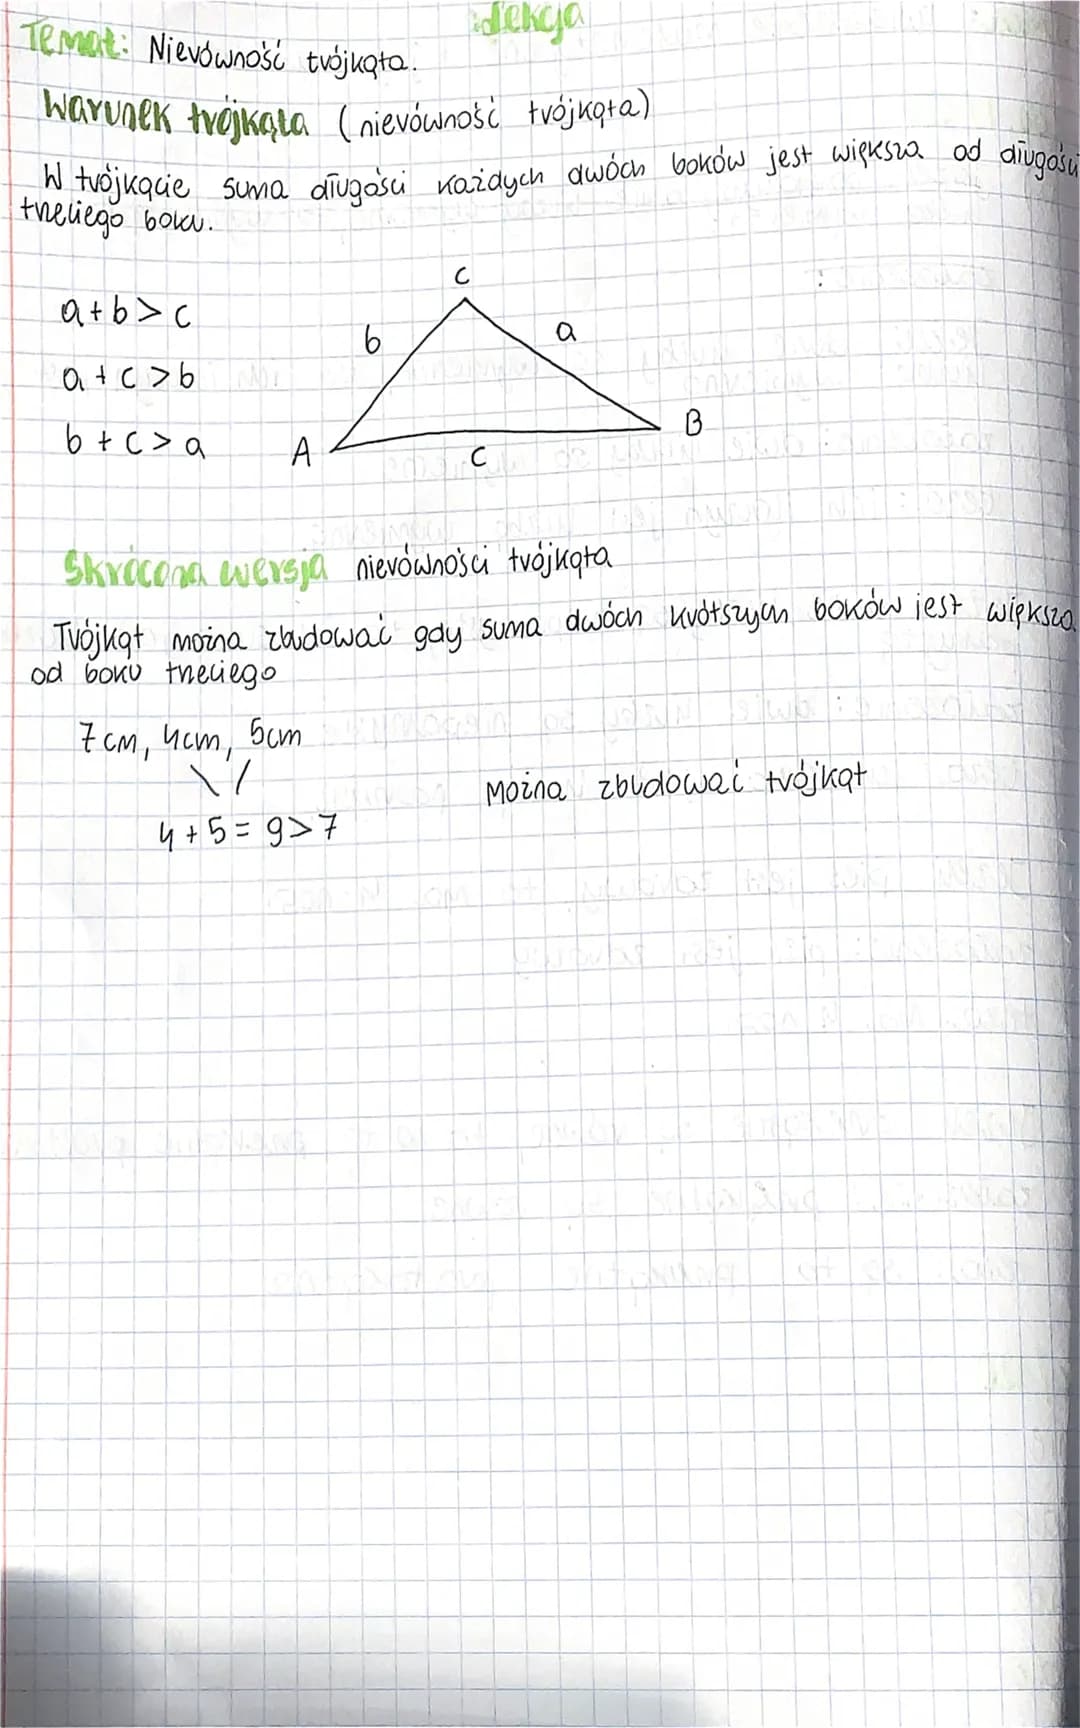 lekcja
Temat: Nierówność trójkąta.
Warunek trójkąta (nierówność trójkąta)
W trójkącie suma długości każdych dwóch boków jest większa od długości
trzeciego boku.
C
a+b>c
b a
a+c>b
b+c>a A c B
Skrócona wersja nierówności trójkąta
Trójkąt można zbudować gdy suma dwóch krótszych boków jest większa
od boku trzeciego
7cm, 4cm, 5cm
Można zbudować trójkąt
4+5=9>7